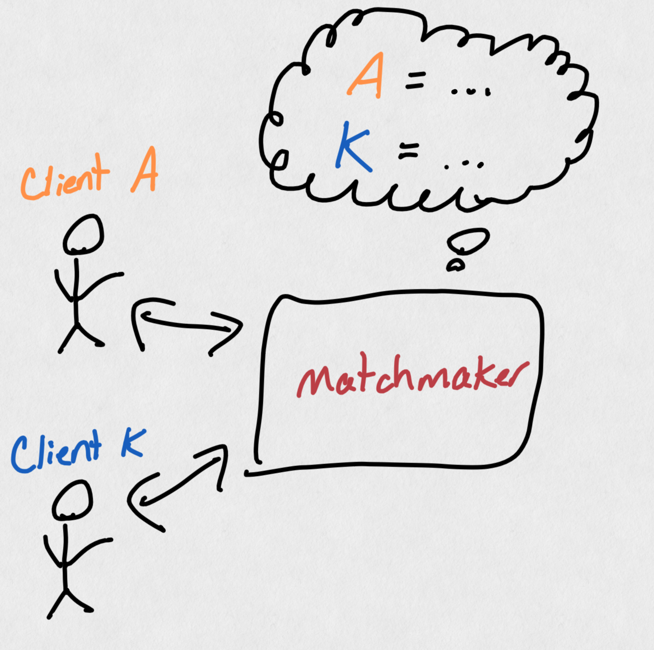 A = ...
K = ...
Client A
matchmaker
Client K